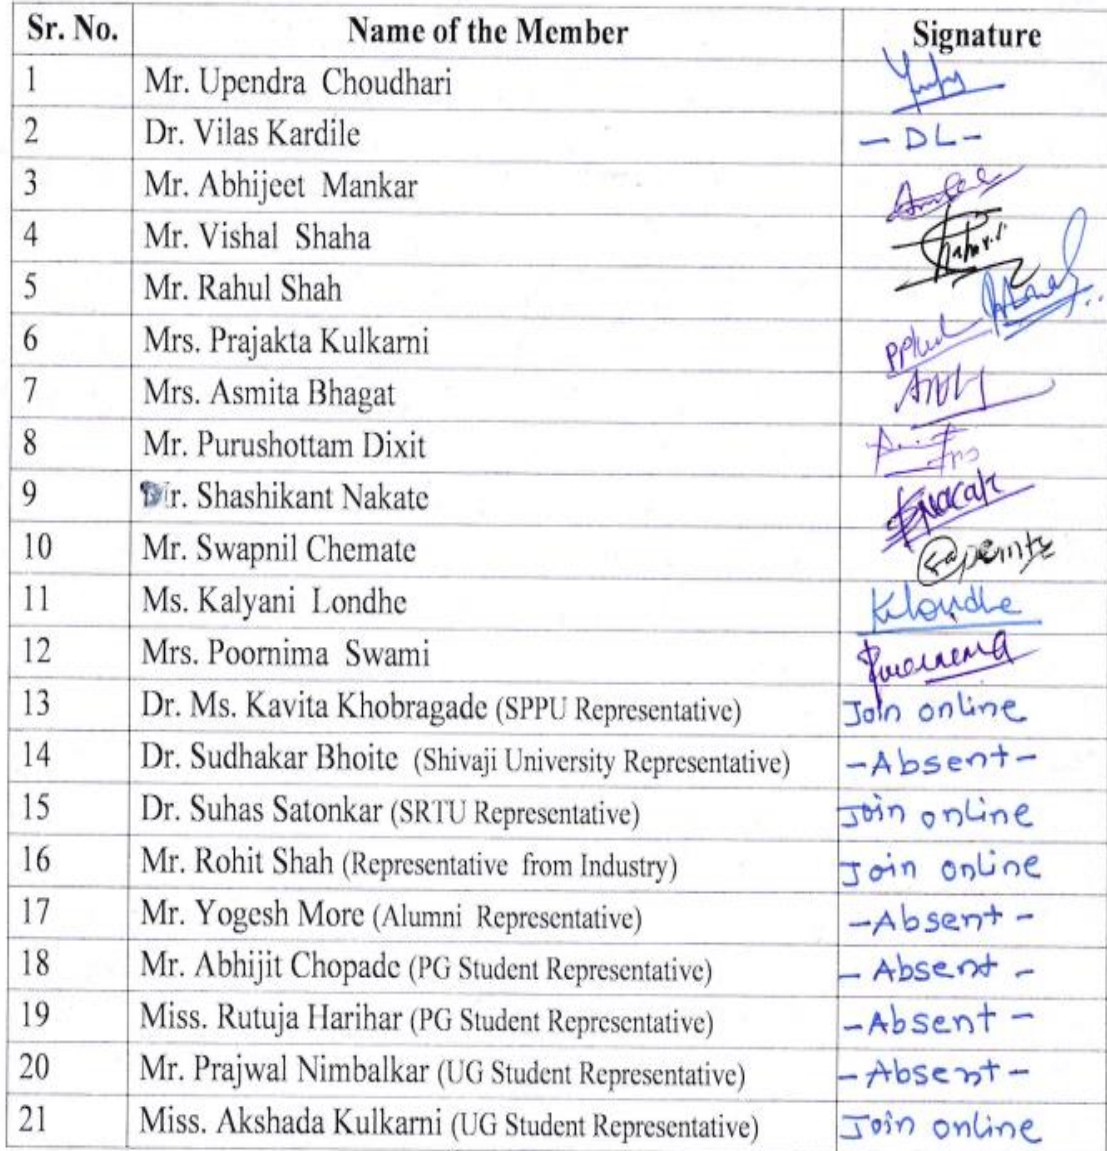 Sr. No. Name of the Member Signature
1 Mr. Upendra Choudhari
2 Dr. Vilas Kardile - DL -
3 Mr. Abhijeet Mankar
4 Mr. Vishal Shaha
5 Mr. Rahul Shah
6 Mrs. Prajakta Kulkarni
7 Mrs. Asmita Bhagat
8 Mr. Purushottam Dixit
9 Dr. Shashikant Nakate
10 Mr. Swapnil Chemate
11 Ms. Kalyani Londhe Klondhe
12 Mrs. Poornima Swami
13 Dr. Ms. Kavita Khobragade (SPPU Representative) Join online
14 Dr. Sudhakar Bhoite (Shivaji University Representative) - Absent -
15 Dr. Suhas Satonkar (SRTU Representative) Join online
16 Mr. Rohit Shah (Representative from Industry) Join online
17 Mr. Yogesh More (Alumni Representative) - Absent -
18 Mr. Abhijit Chopade (PG Student Representative) - Absent -
19 Miss. Rutuja Harihar (PG Student Representative) - Absent -
20 Mr. Prajwal Nimbalkar (UG Student Representative) - Absent -
21 Miss. Akshada Kulkarni (UG Student Representative) Join online